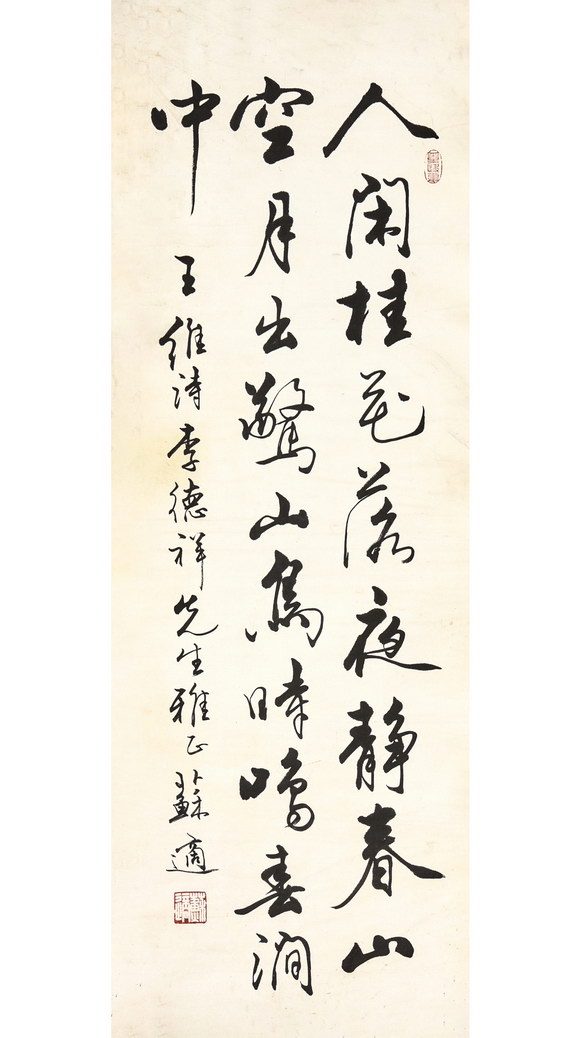 人闲桂花落夜静春山
空月出驚山鳥時鳴春澗
中
王維詩李德祥先生雅正蘇適